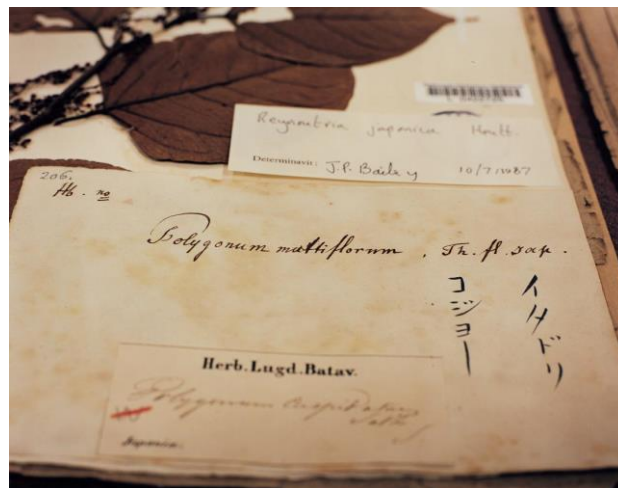 Reynoutria japonica Houtt.
Determinavit: J.P. Bailey 10/7/1987
206.
Hb. no
Polygonum multiflorum, Th. fl. Jap.
イタドリ
コジョー
Herb. Lugd. Batav.
Polygonum cuspidatum
Japonia.